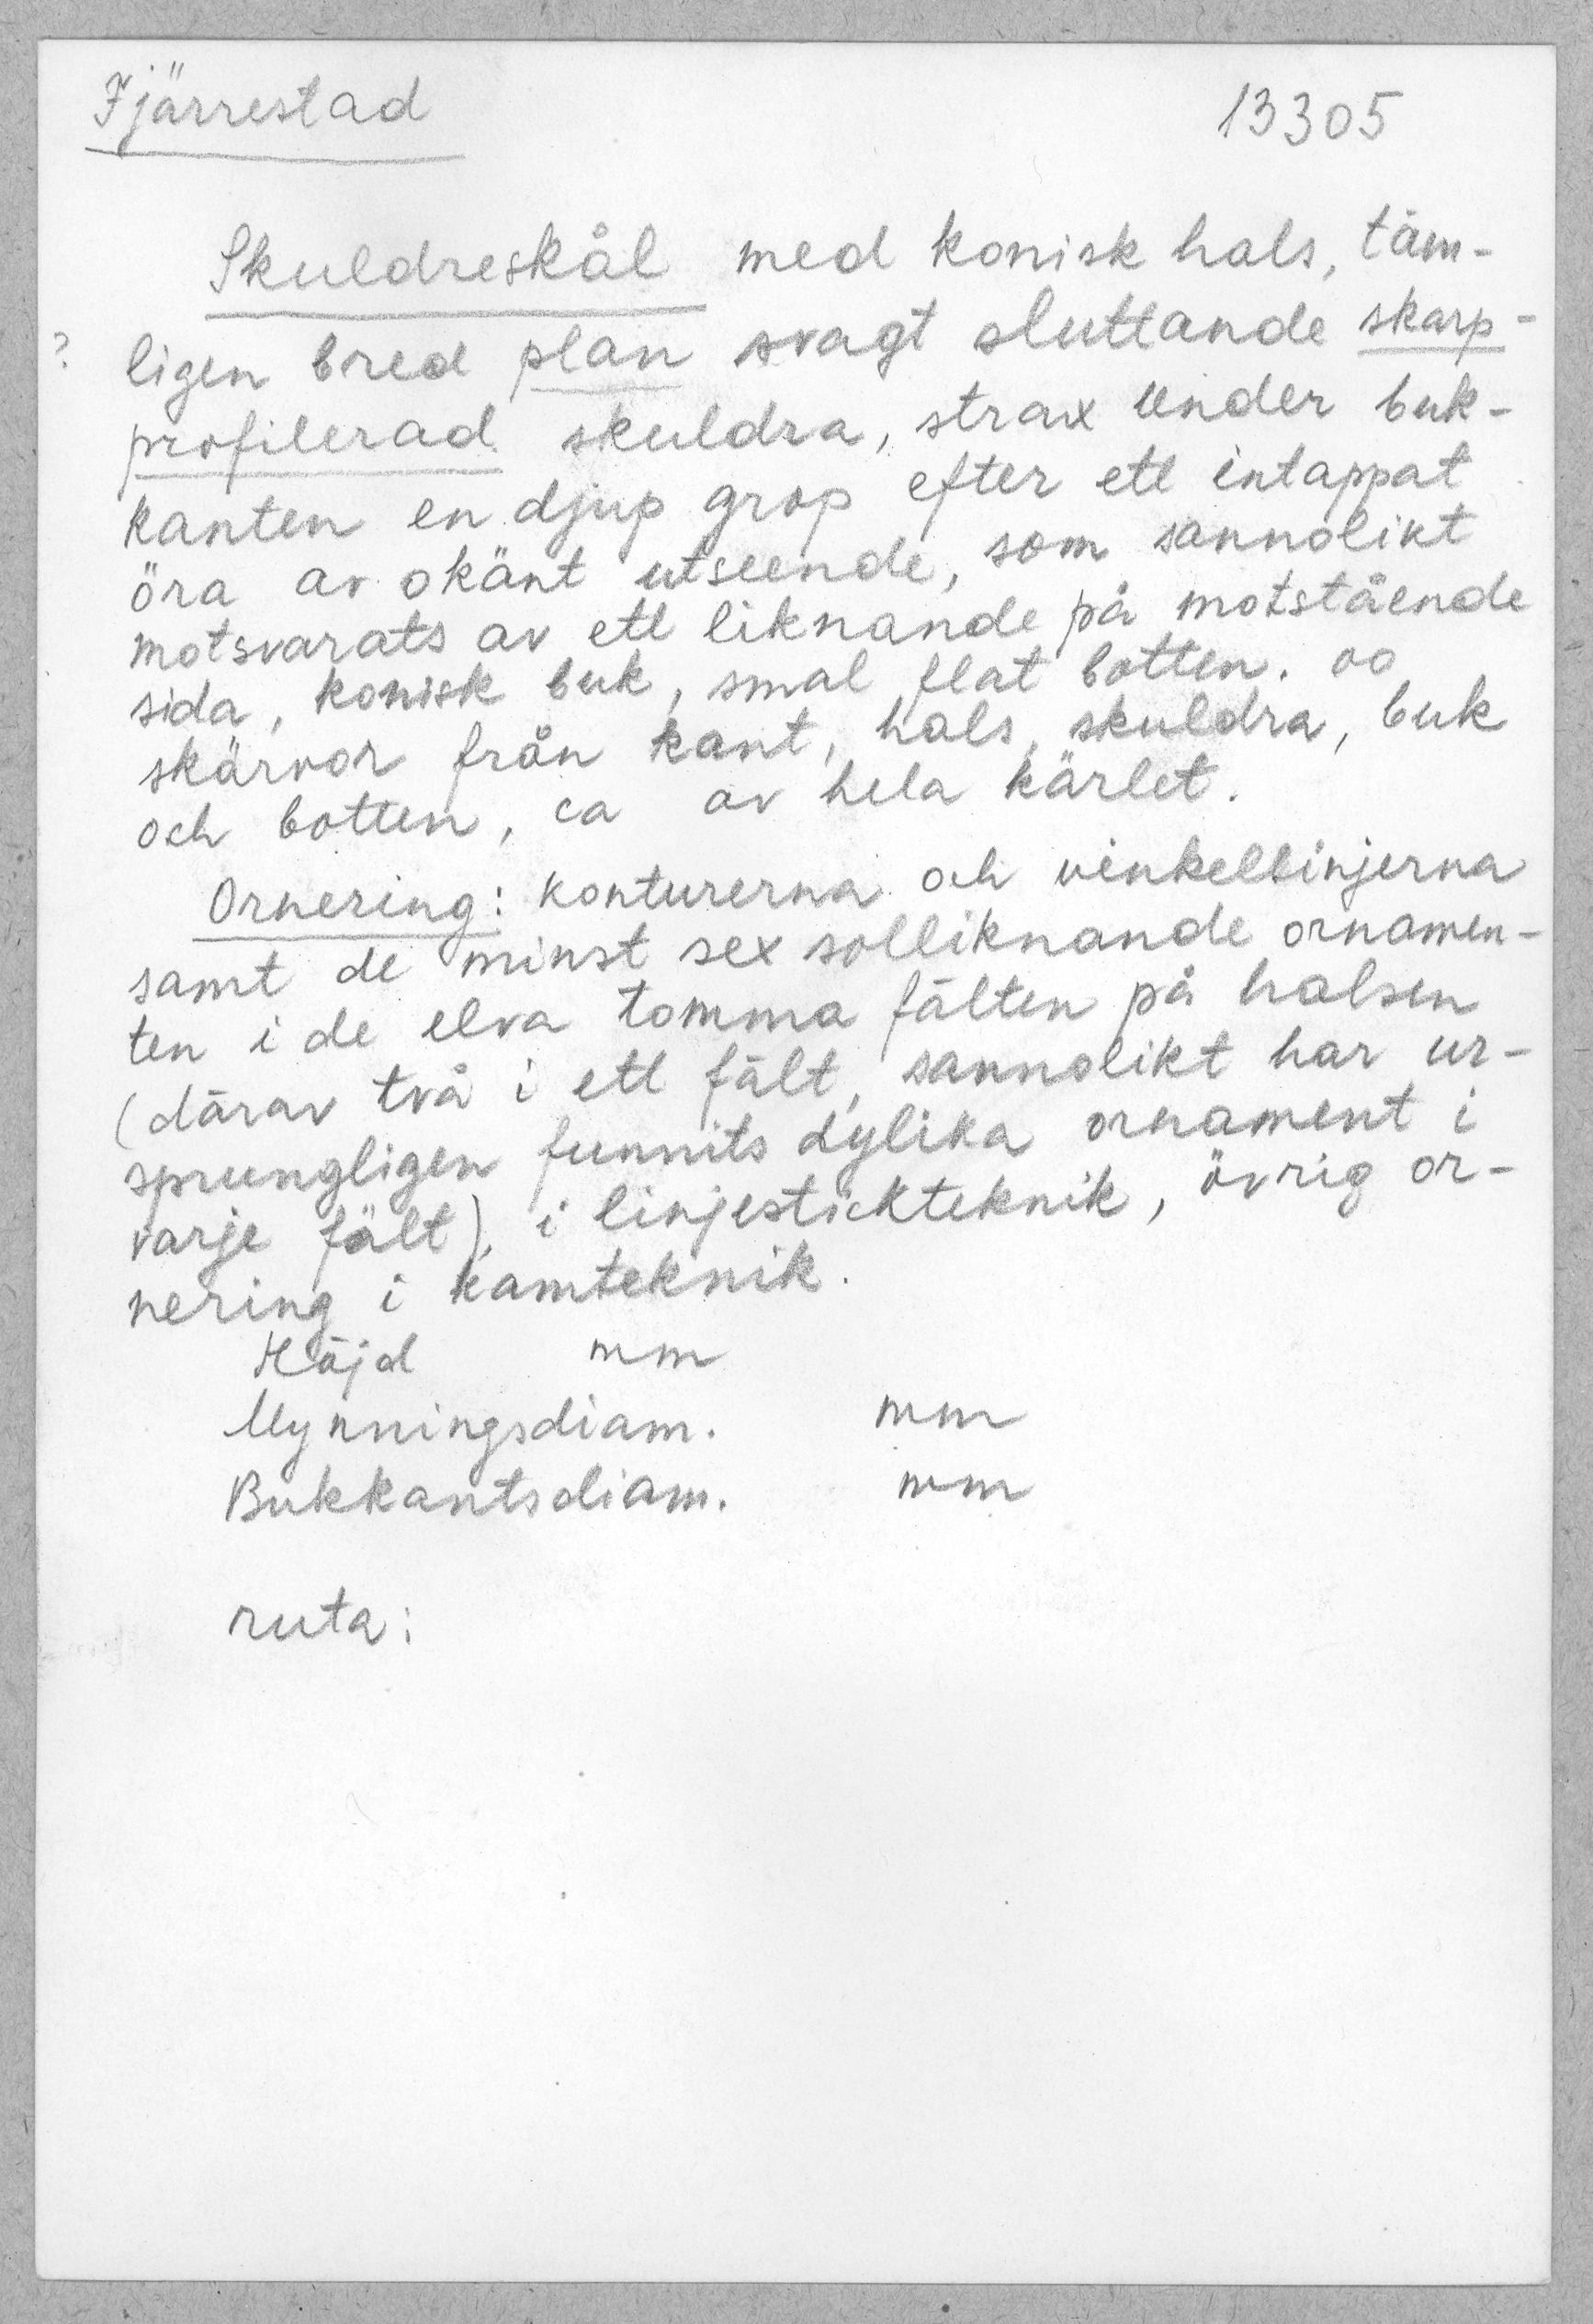 Fjärrestad 13305
Skuldreskål med konisk hals, täm-
? ligen bred plan svagt sluttande skarp-
profilerad skuldra, strax under buk-
kanten en djup grop efter ett intappat
öra av okänt utseende, som sannolikt
motsvarats av ett liknande på motstående
sida, konisk buk, smal flat botten. oo
skärvor från kant, hals, skuldra, buk
och botten, ca av hela kärlet.
Ornering: konturerna och vinkellinjerna
samt de minst sex solliknande ornamen-
ten i de elva tomma fälten på halsen
(därav två i ett fält, sannolikt har ur-
sprungligen funnits dylika ornament i
varje fält), i linjestickteknik, övrig or-
nering i kamteknik.
Höjd mm
Mynningsdiam. mm
Bukkantsdiam. mm
ruta: